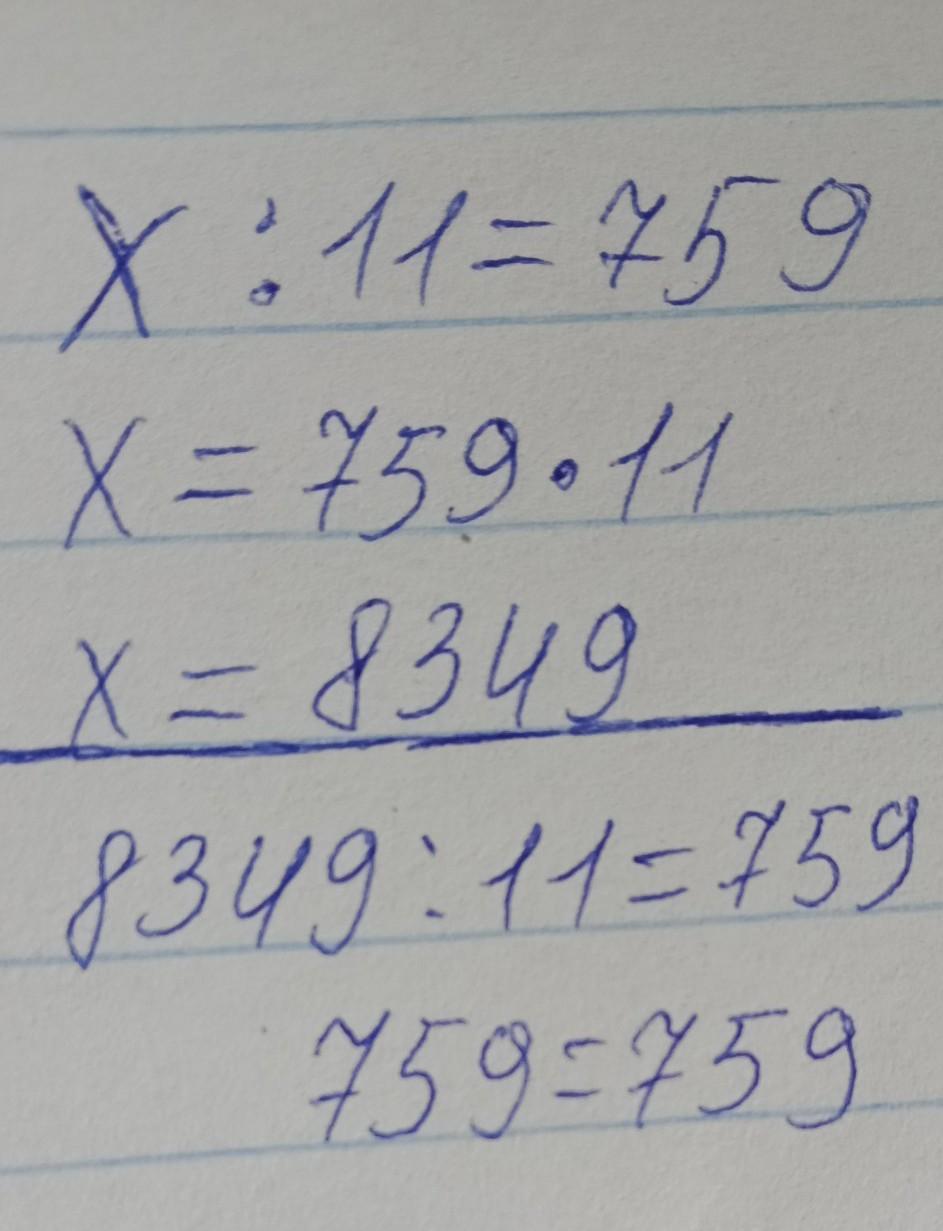 X : 11 = 759
X = 759 · 11
x = 8349
8349 : 11 = 759
759 = 759